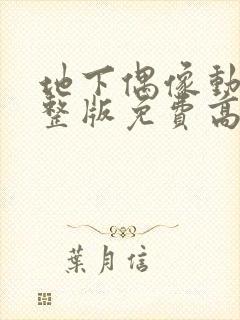 地下偶像動
整版免費高
葉月信